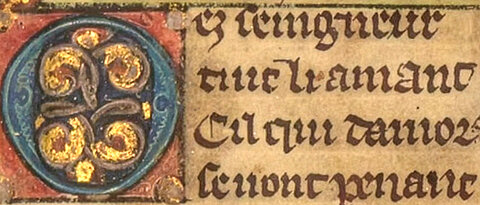 Oez seingneur
tuit li amant
Cil qui damors
se vont penant